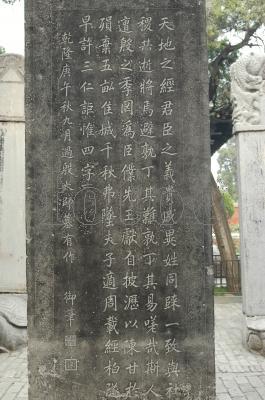 天地之經君臣之義貴戚異姓同踈一致與社
稷共逝將焉避孰丁其難孰丁其易嗟哉斯人
遭殷之季罔為臣僕先王獻自披瀝以陳甘於
殞棄五畝佳城千秋弗墜夫子適周載經柏隧
早許三仁詎惟四字
乾隆庚午秋九月過殷太師墓有作 御筆